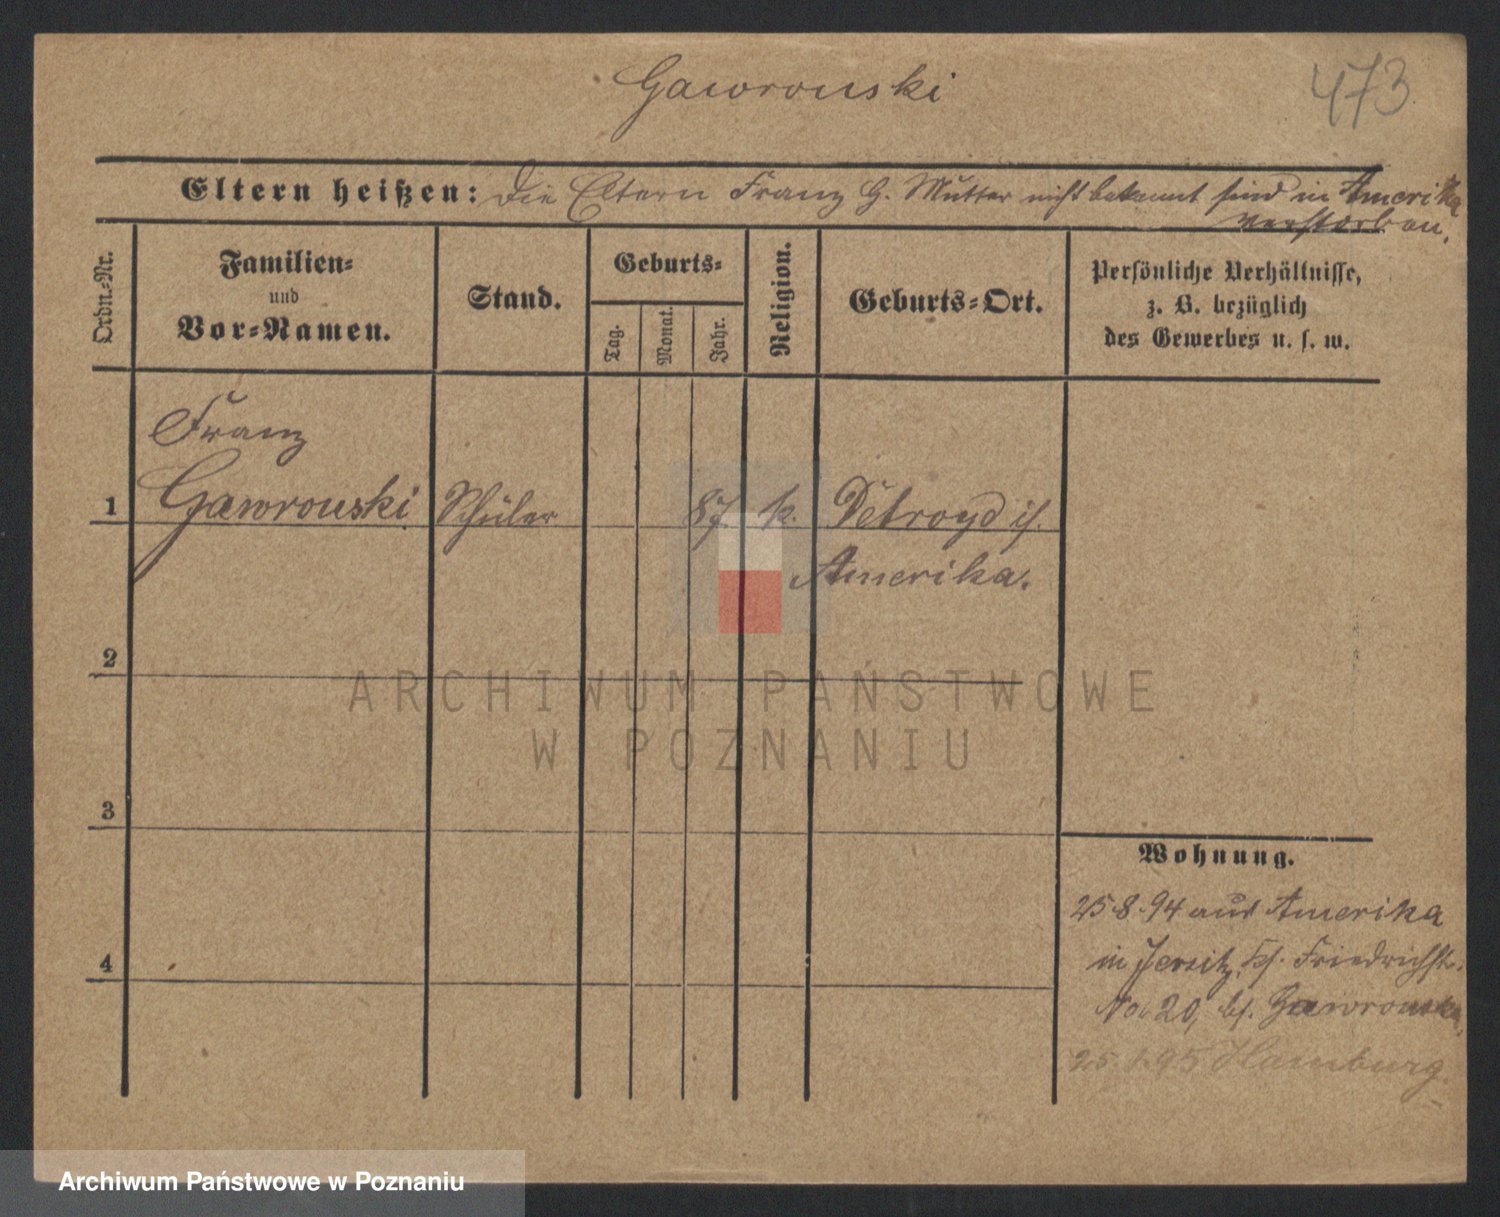 Gawronski
473
Eltern heißen: Die Eltern Franz G. Mutter nicht bekannt sind in Amerika
verstorben.
Ordn.-Nr.
Familien-
und
Vor-Namen.
Stand.
Geburts-
Tag.
Monat.
Jahr.
Religion.
Geburts-Ort.
Persönliche Verhältnisse,
z. B. bezüglich
des Gewerbes u. s. w.
Franz
1 Gawronski Schüler 87 k. Detroyd i/.
Amerika.
2
3
4
Wohnung.
25.8.94 aus Amerika
in Jersitz, Friedrichstr.
No 20, bei Gawronska
95 Hamburg.
ARCHIWUM PAŃSTWOWE
W POZNANIU
Archiwum Państwowe w Poznaniu